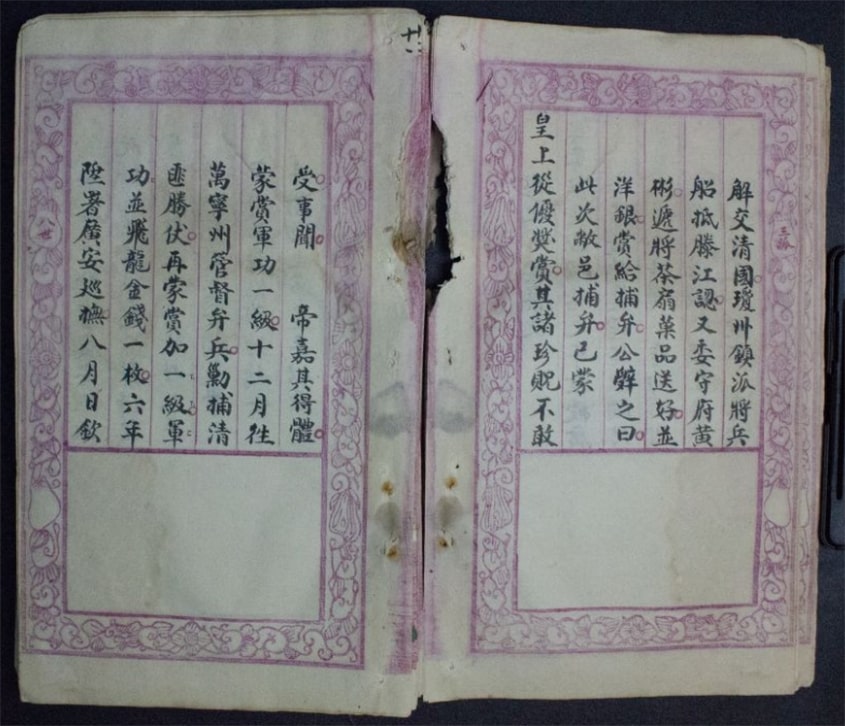 解交清國瓊州鎮派將兵
船抵滕江認又委守府黃
彬遞將茶扇菓品送好並
洋銀賞給捕弁公辭之曰
此次敝邑捕弁已蒙
皇上從優獎賞其諸珍貺不敢
受事聞　帝嘉其得體
蒙賞軍功一級十二月往
萬寧州管督弁兵勦捕清
匪勝仗再蒙賞加一級軍
功並飛龍金錢一枚六年
陞署廣安巡撫八月日欽